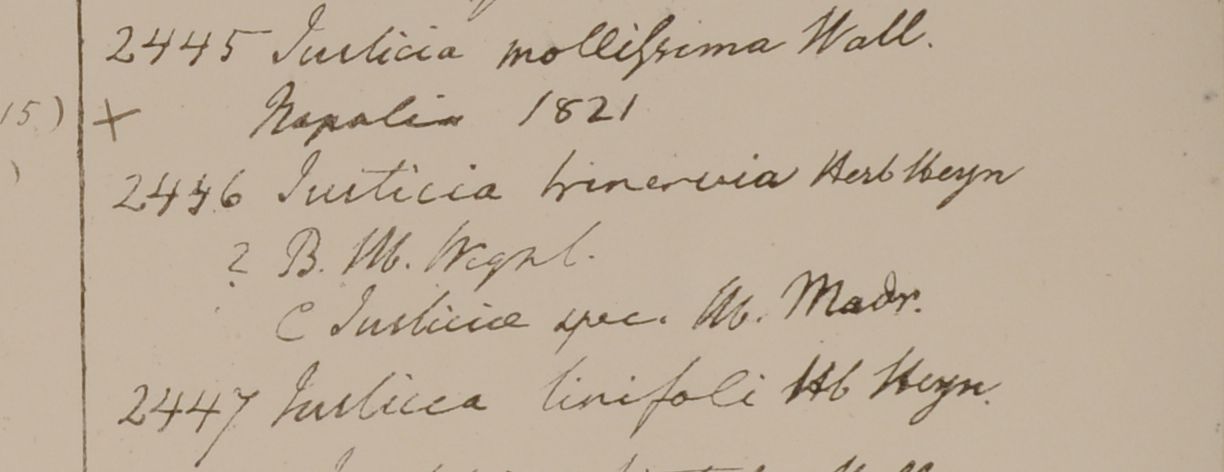 2445 Justicia mollissima Wall.
15) + Napalia 1821
) 2446 Justicia trinervia Herb Heyn
? B. Hb. Wight.
C Justicia spec. Hb. Madr.
2447 Justicia linifoli Hb Heyn.